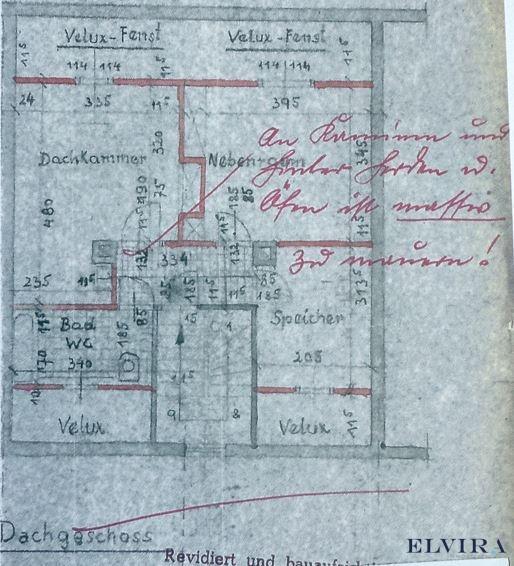 Velux-Fenst
Velux-Fenst
11⁵
114 114
11⁵
114 114
11⁵
24
335
11⁵
395
Dachkammer
320
Nebenraum
345
An Kaminen und
hinter Herden u.
Öfen ist massiv
zu mauern!
480
190
75
11⁵
185
85
11⁵
11⁵
132
334
132
235
11⁵
25
185
11⁵
11⁵
85
185
313⁵
11⁵
Bad
WC
185
85
15
1
Speicher
170
340
205
Velux
9
8
Velux
11⁵
Dachgeschoss
Revidiert und bauaufsichtl
ELVIRA